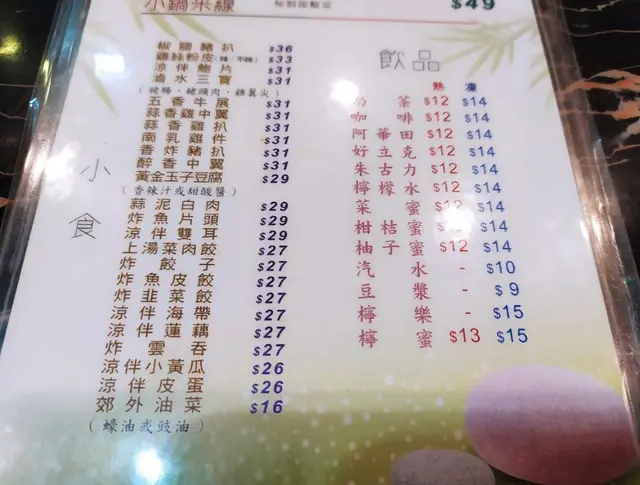 小鍋米線 $49
小食
椒鹽豬扒 $36
雞絲粉皮 $33
涼伴鮑片 $31
滷水三寶 $31
(豬腸、豬頭肉、雞翼尖)
五香牛展 $31
蒜香雞中翼 $31
蒜香雞扒 $31
南乳雞件 $31
香炸豬扒 $31
醉香中翼 $31
黃金玉子豆腐 $29
(香辣汁或甜酸醬)
蒜泥白肉 $29
炸魚片頭 $29
涼伴雙耳 $29
上湯菜肉餃 $27
炸餃子 $27
炸魚皮餃 $27
炸韭菜餃 $27
涼伴海帶 $27
涼伴蓮藕 $27
炸雲吞 $27
涼伴小黃瓜 $26
涼伴皮蛋 $26
郊外油菜 $16
(蠔油或豉油)
飲品
熱 凍
奶茶 $12 $14
咖啡 $12 $14
阿華田 $12 $14
好立克 $12 $14
朱古力 $12 $14
檸檬水 $12 $14
菜蜜 $12 $14
柑桔蜜 $12 $14
柚子蜜 $12 $14
汽水 - $10
豆漿 - $9
檸樂 - $15
檸蜜 $13 $15